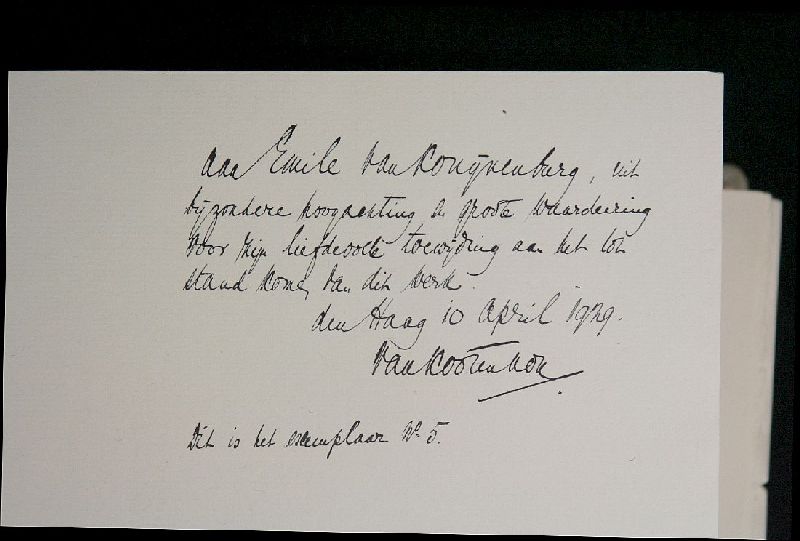 aan Emile van Konijnenburg, uit
bijzondere hoogachting en groote waardeering
voor zijn liefdevolle toewijding aan het tot
stand komen van dit werk.
den Haag 10 April 1929.
van Rossem
Dit is het exemplaar No. 5.